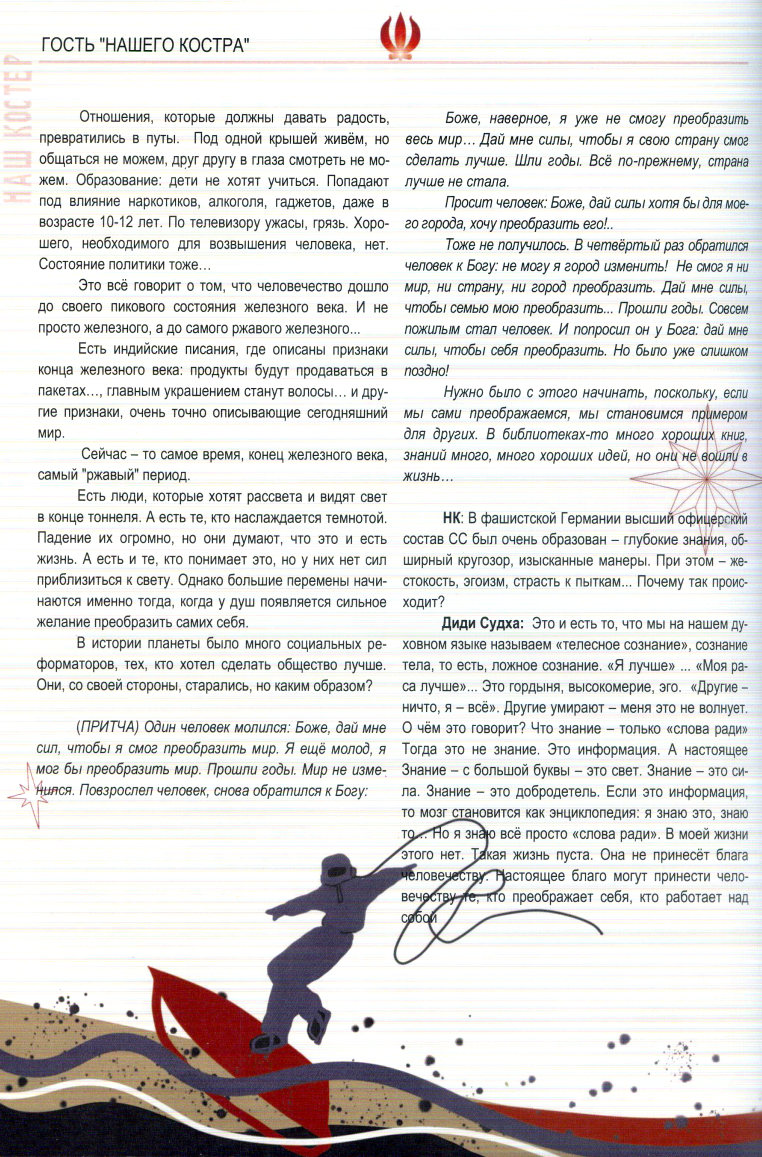 ГОСТЬ "НАШЕГО КОСТРА"
НАШ КОСТЕР
Отношения, которые должны давать радость,
превратились в путы. Под одной крышей живём, но
общаться не можем, друг другу в глаза смотреть не мо-
жем. Образование: дети не хотят учиться. Попадают
под влияние наркотиков, алкоголя, гаджетов, даже в
возрасте 10-12 лет. По телевизору ужасы, грязь. Хоро-
шего, необходимого для возвышения человека, нет.
Состояние политики тоже…
Это всё говорит о том, что человечество дошло
до своего пикового состояния железного века. И не
просто железного, а до самого ржавого железного...
Есть индийские писания, где описаны признаки
конца железного века: продукты будут продаваться в
пакетах…, главным украшением станут волосы… и дру-
гие признаки, очень точно описывающие сегодняшний
мир.
Сейчас – то самое время, конец железного века,
самый "ржавый" период.
Есть люди, которые хотят рассвета и видят свет
в конце тоннеля. А есть те, кто наслаждается темнотой.
Падение их огромно, но они думают, что это и есть
жизнь. А есть и те, кто понимает это, но у них нет сил
приблизиться к свету. Однако большие перемены начи-
наются именно тогда, когда у душ появляется сильное
желание преобразить самих себя.
В истории планеты было много социальных ре-
форматоров, тех, кто хотел сделать общество лучше.
Они, со своей стороны, старались, но каким образом?
(ПРИТЧА) Один человек молился: Боже, дай мне
сил, чтобы я смог преобразить мир. Я ещё молод, я
мог бы преобразить мир. Прошли годы. Мир не изме-
нился. Повзрослел человек, снова обратился к Богу:
Боже, наверное, я уже не смогу преобразить
весь мир… Дай мне силы, чтобы я свою страну смог
сделать лучше. Шли годы. Всё по-прежнему, страна
лучше не стала.
Просит человек: Боже, дай силы хотя бы для мое-
го города, хочу преобразить его!..
Тоже не получилось. В четвёртый раз обратился
человек к Богу: не могу я город изменить! Не смог я ни
мир, ни страну, ни город преобразить. Дай мне силы,
чтобы семью мою преобразить... Прошли годы. Совсем
пожилым стал человек. И попросил он у Бога: дай мне
силы, чтобы себя преобразить. Но было уже слишком
поздно!
Нужно было с этого начинать, поскольку, если
мы сами преображаемся, мы становимся примером
для других. В библиотеках-то много хороших книг,
знаний много, много хороших идей, но они не вошли в
жизнь…
НК: В фашистской Германии высший офицерский
состав СС был очень образован – глубокие знания, об-
ширный кругозор, изысканные манеры. При этом – же-
стокость, эгоизм, страсть к пыткам... Почему так проис-
ходит?
Диди Судха: Это и есть то, что мы на нашем ду-
ховном языке называем «телесное сознание», сознание
тела, то есть, ложное сознание. «Я лучше» ... «Моя ра-
са лучше»... Это гордыня, высокомерие, эго. «Другие –
ничто, я – всё». Другие умирают – меня это не волнует.
О чём это говорит? Что знание – только «слова ради»
Тогда это не знание. Это информация. А настоящее
Знание – с большой буквы – это свет. Знание – это си-
ла. Знание – это добродетель. Если это информация,
то мозг становится как энциклопедия: я знаю это, знаю
то… Но я знаю всё просто «слова ради». В моей жизни
этого нет. Такая жизнь пуста. Она не принесёт блага
человечеству. Настоящее благо могут принести чело-
вечеству те, кто преображает себя, кто работает над
собой